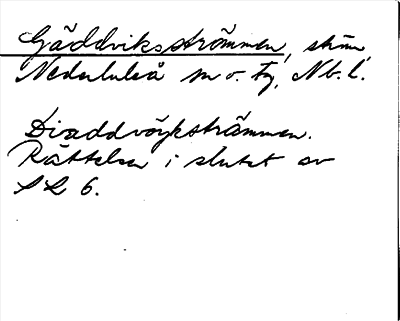 Gäddviksströmmen, ström,
Nederluleå sn o. tg, Nb. l.
Diäddvöykströmmen.
Rättelser i slutet av
SL 6.